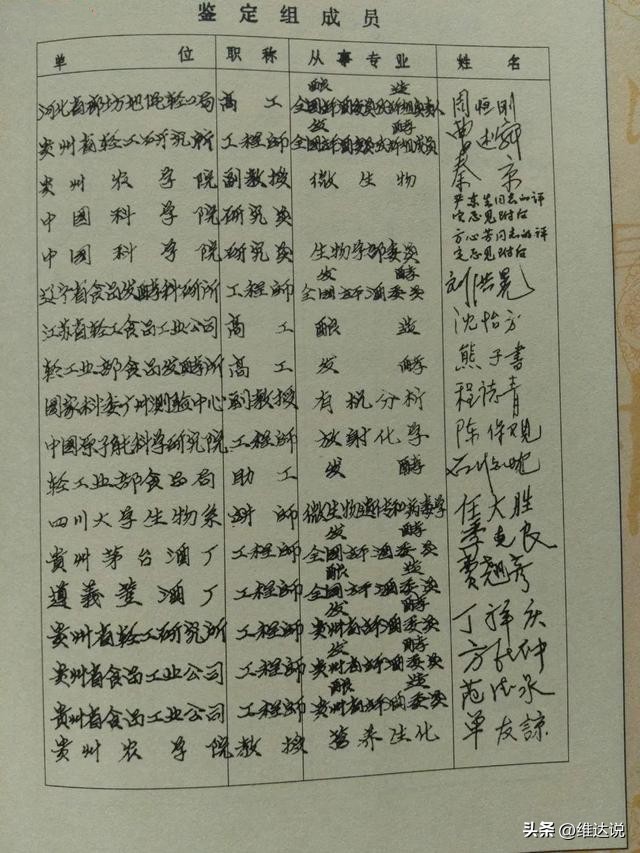 鉴定组成员
单位 职称 从事专业 姓名
河北省廊坊地区轻工局 高工 酿造 全国评酒委员 周恒刚
贵州省轻工研究所 工程师 发酵 全国评酒委员 曹述舜
贵州农学院 副教授 微生物 秦京
中国科学院 研究员 严东生同志的评定意见附后
中国科学院 研究员 生物学部委员 方心芳同志的评定意见附后
辽宁省食品发酵科研所 工程师 发酵 全国评酒委员 刘洪晃
江苏省轻工食品工业公司 高工 酿造 沈怡方
轻工业部食品发酵所 高工 发酵 熊子書
国家科委广州测验中心 副教授 有机分析 程志青
中国原子能科学研究院 工程师 放射化学 陈保观
轻工业部食品局 助工 发酵
四川大学生物系 讲师 微生物遗传和病毒学 任大胜
贵州茅台酒厂 工程师 发酵 全国评酒委员 季克良
遵義董酒厂 工程师 酿造 全国评酒委员 贾翘彦
贵州省轻工研究所 工程师 发酵 贵州省评酒委员 丁祥庆
贵州省食品工业公司 工程师 发酵 贵州省评酒委员 方长仲
贵州省食品工业公司 工程师 酿造 贵州省评酒委员 范德永
贵州农学院 教授 营养生化 单友諒
头条 @维达说